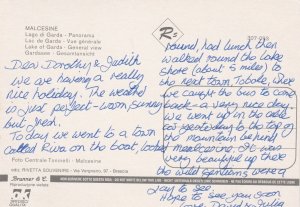 MALCESINE
Lago di Garda - Panorama
Lac de Garda - Vue générale
Lake of Garda - General view
Gardasee - Gesamtansicht
Dear Dorothy & Judith
We are having a really
nice holiday. The weather
is just perfect - warm, sunny
but fresh.
Today we went to a town
called Riva on the boat,
Foto Centrale Toninelli - Malcesine
Rs
307-093
round, had lunch then
walked round the lake
shore (about 5 miles) to
the next town Tobole, then
we caught the bus to came
back - a very nice day.
We went up in the cable
car yesterday to the top of
the mountain, behind
malcesine. It was
very beautiful up there
the wild gentians were a
joy to see.
Hope to see you